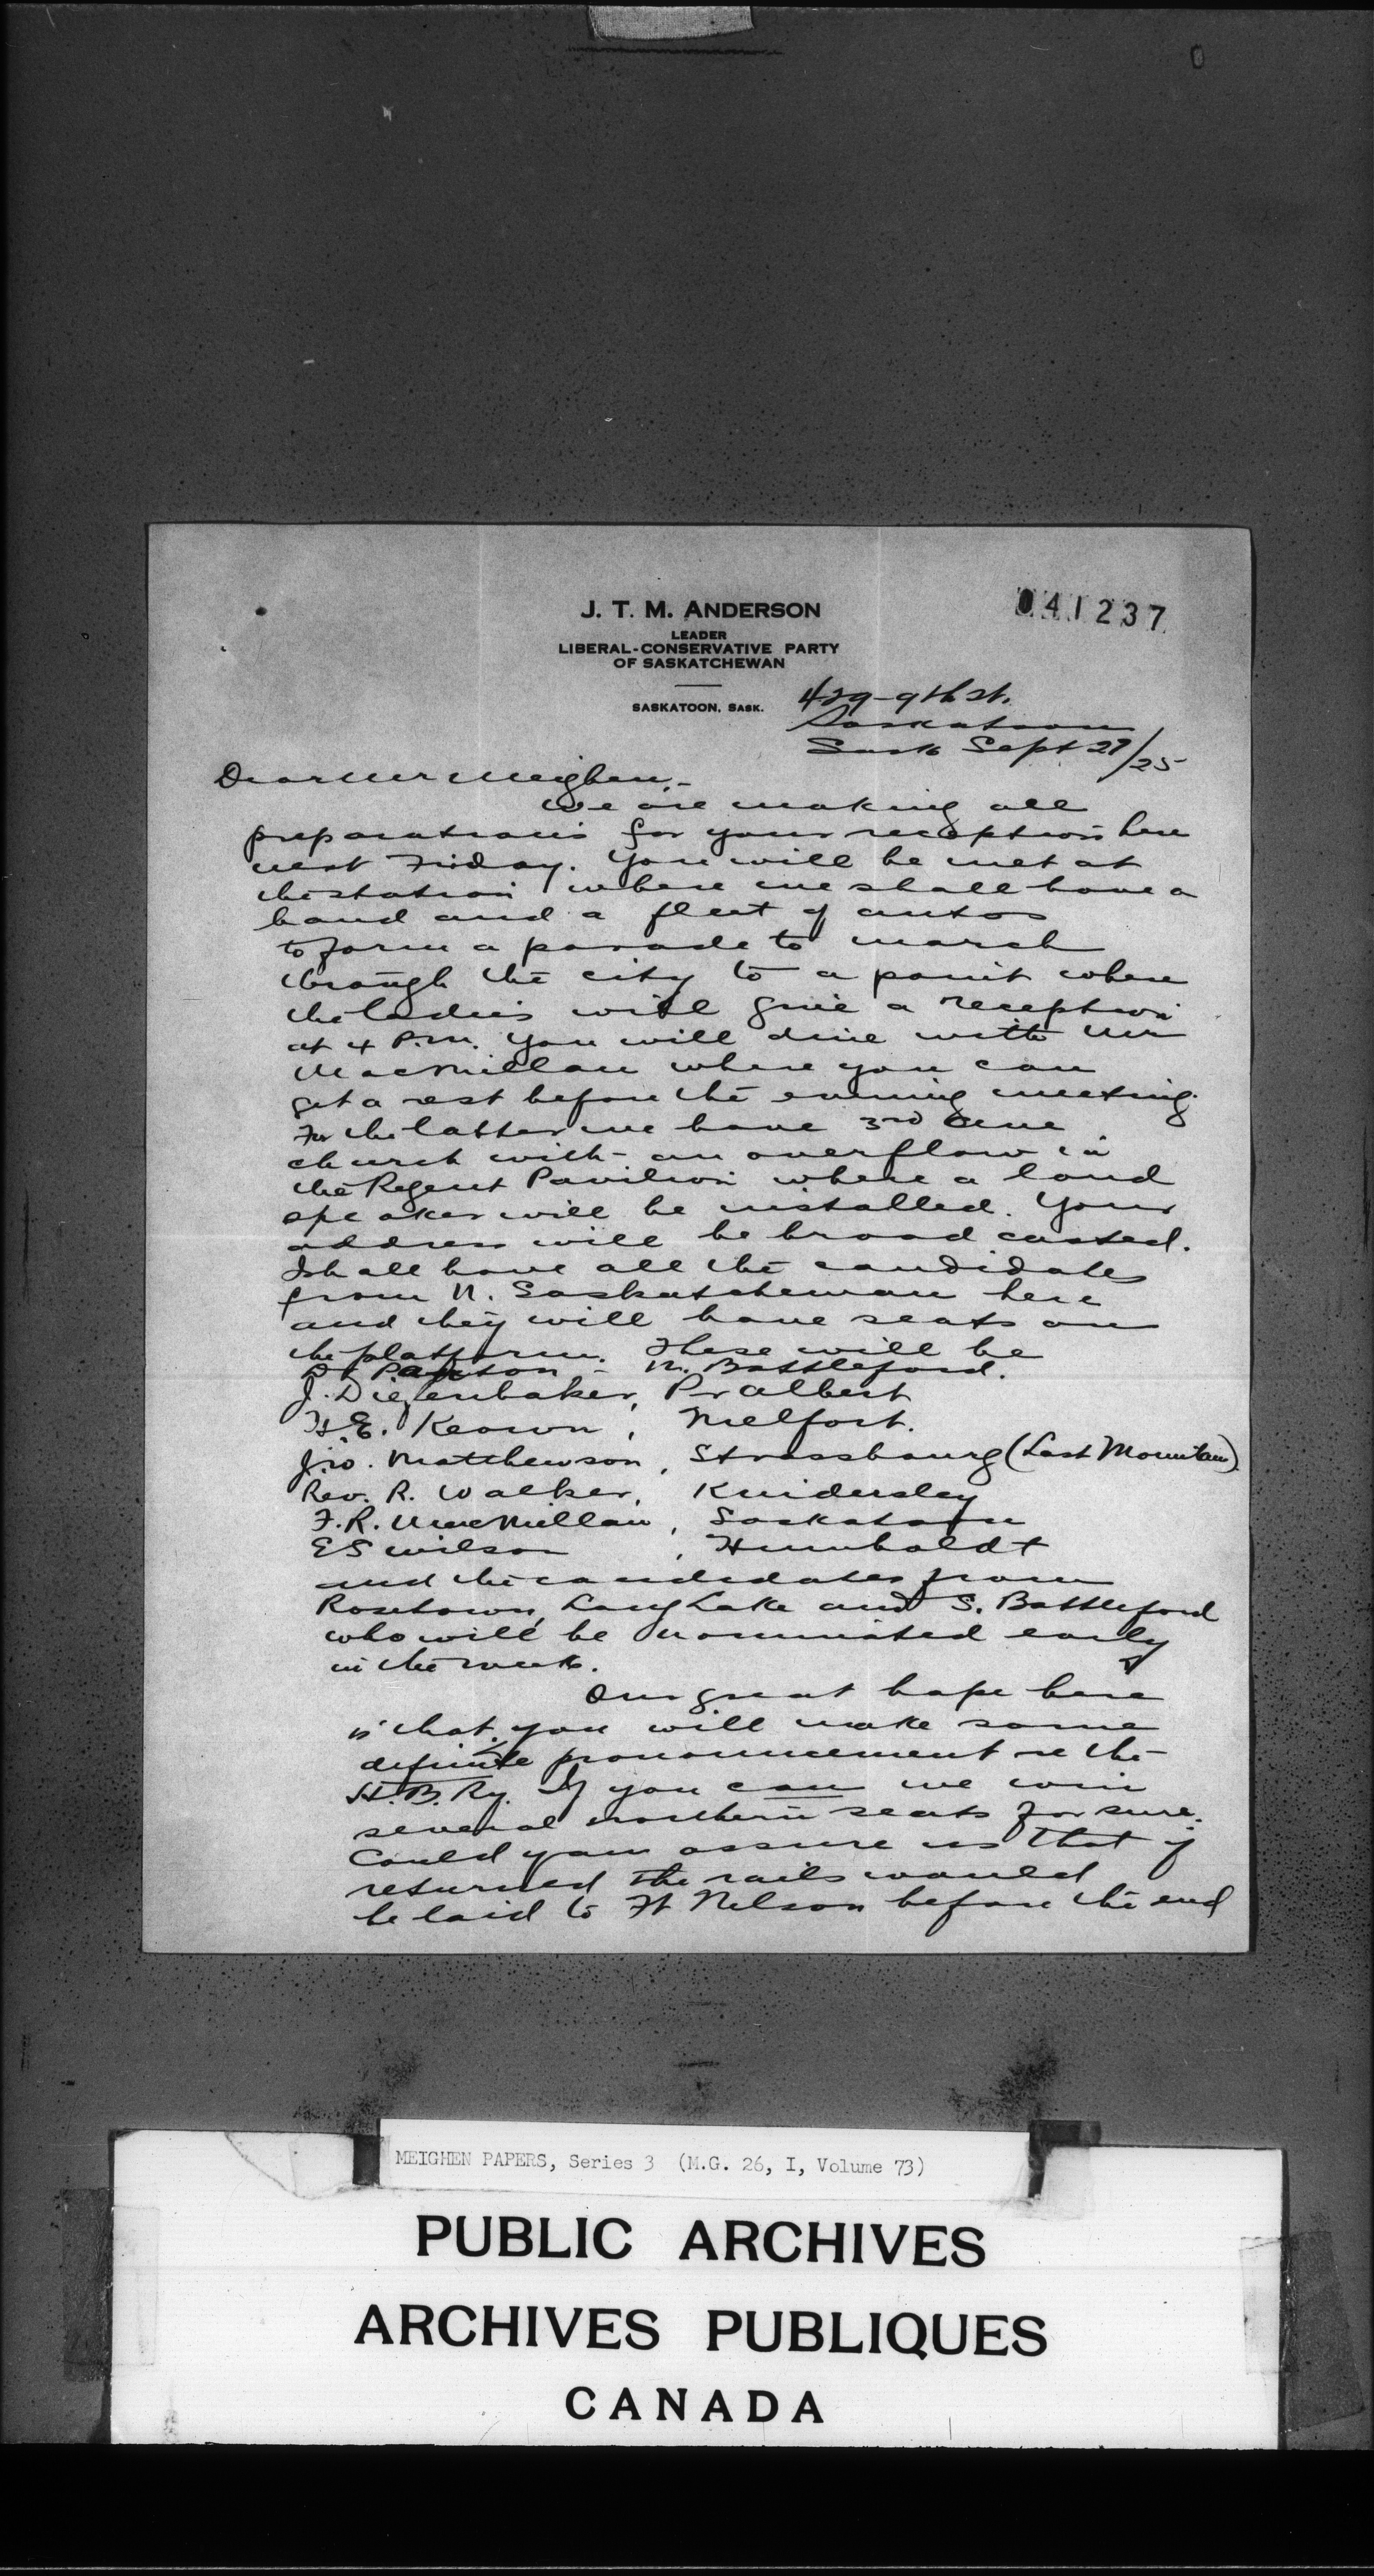 041237
J. T. M. ANDERSON
LEADER
LIBERAL-CONSERVATIVE PARTY
OF SASKATCHEWAN
SASKATOON, SASK.
429-9th St.
Saskatoon
Sask Sept 27/25
Dear Mr Meighen,-
We are making all
preparations for your reception here
next Friday. You will be met at
the station where we shall have a
band and a fleet of autos
to form a parade to march
through the city to a point where
the ladies will give a reception
at 4 P.m. You will dine with Mr
MacMillan where you can
get a rest before the evening meeting.
For the latter we have 3rd Ave
church with an overflow in
the Regent Pavilion where a loud
speaker will be installed. Your
address will be broad casted.
I shall have all the candidates
from N. Saskatchewan here
and they will have seats on
the platform. These will be
Dr - N. Battleford.
J. Diefenbaker, Pr Albert
H.E. Keown, Melfort.
J.W. Matthewson, Strassbourg (Last Mountain)
Rev. R. Walker, Kindersley
F.R. MacMillan, Saskatoon
E S Wilson, Humboldt
and the candidates from
Rosetown, Long Lake and S. Battleford
who will be nominated early
in the week.
Our great hope here
is that you will make some
definite pronouncement re the
H.B. Ry. If you can we win
several northern seats for sure.
Could you assure us that if
returned the rails would
be laid to Ft Nelson before the end
MEIGHEN PAPERS, Series 3 (M.G. 26, I, Volume 73)
PUBLIC ARCHIVES
ARCHIVES PUBLIQUES
CANADA